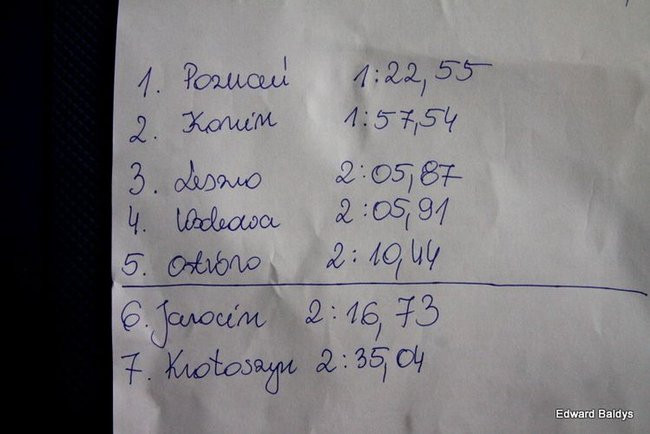 1. Poznań 1:22,55
2. Konin 1:57,54
3. Leszno 2:05,87
4. 2:05,91
5. Ostrów 2:10,44
6. Jarocin 2:16,73
7. Krotoszyn 2:35,04
Edward Baldys